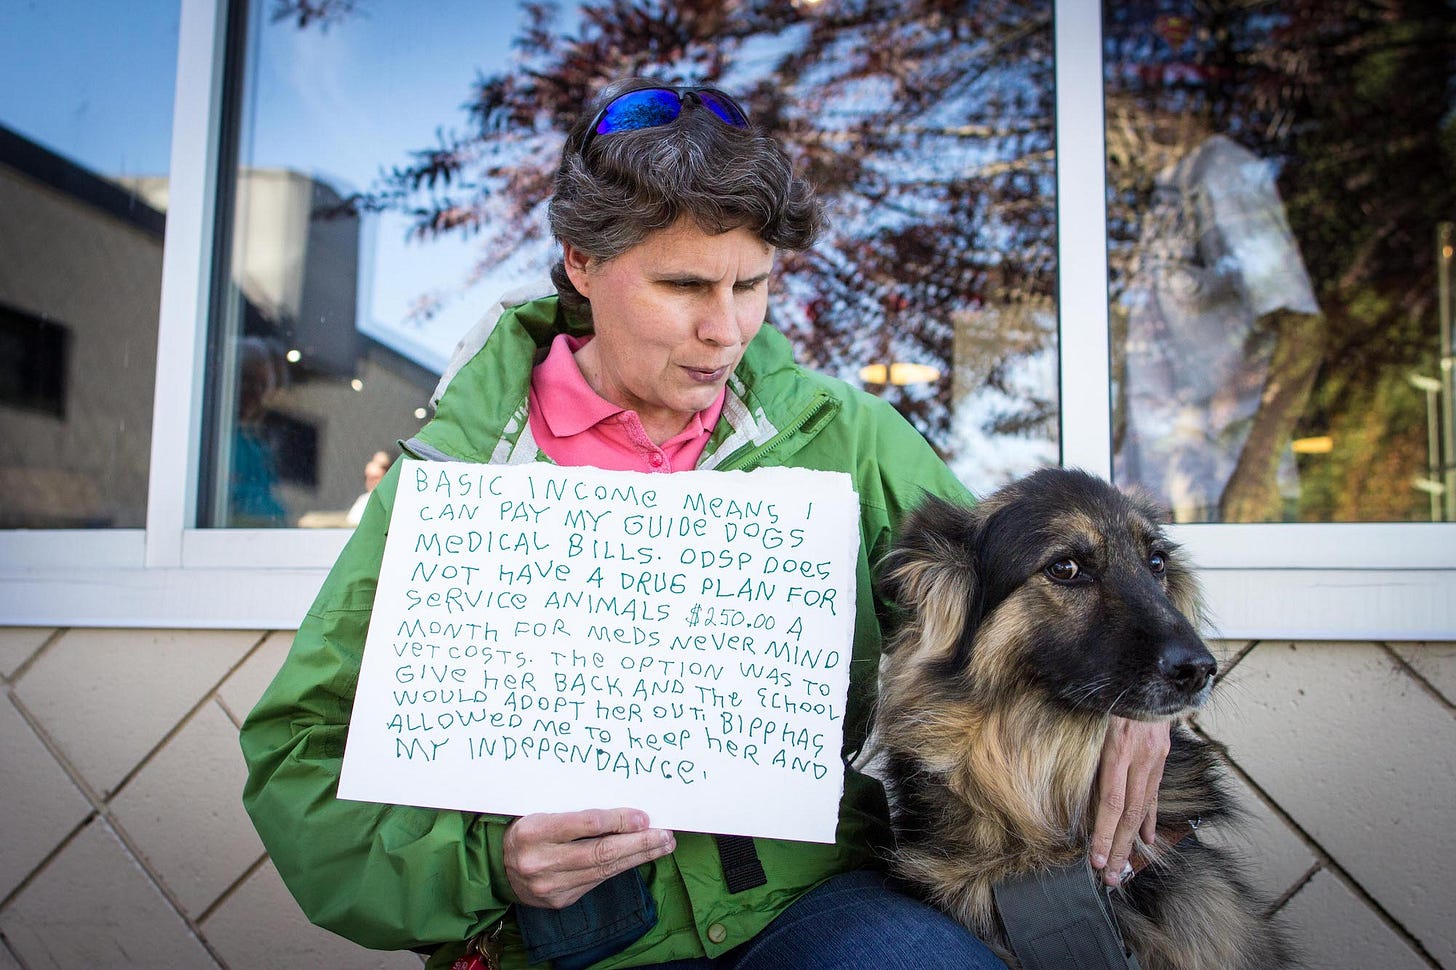 BASIC INCOME MEANS I
CAN PAY MY GUIDE DOGS
MEDICAL BILLS. ODSP DOES
NOT HAVE A DRUG PLAN FOR
SERVICE ANIMALS $250.00 A
MONTH FOR MEDS NEVER MIND
VET COSTS. THE OPTION WAS TO
GIVE HER BACK AND THE SCHOOL
WOULD ADOPT HER OUT. BIPP HAS
ALLOWED ME TO KEEP HER AND
MY INDEPENDANCE.